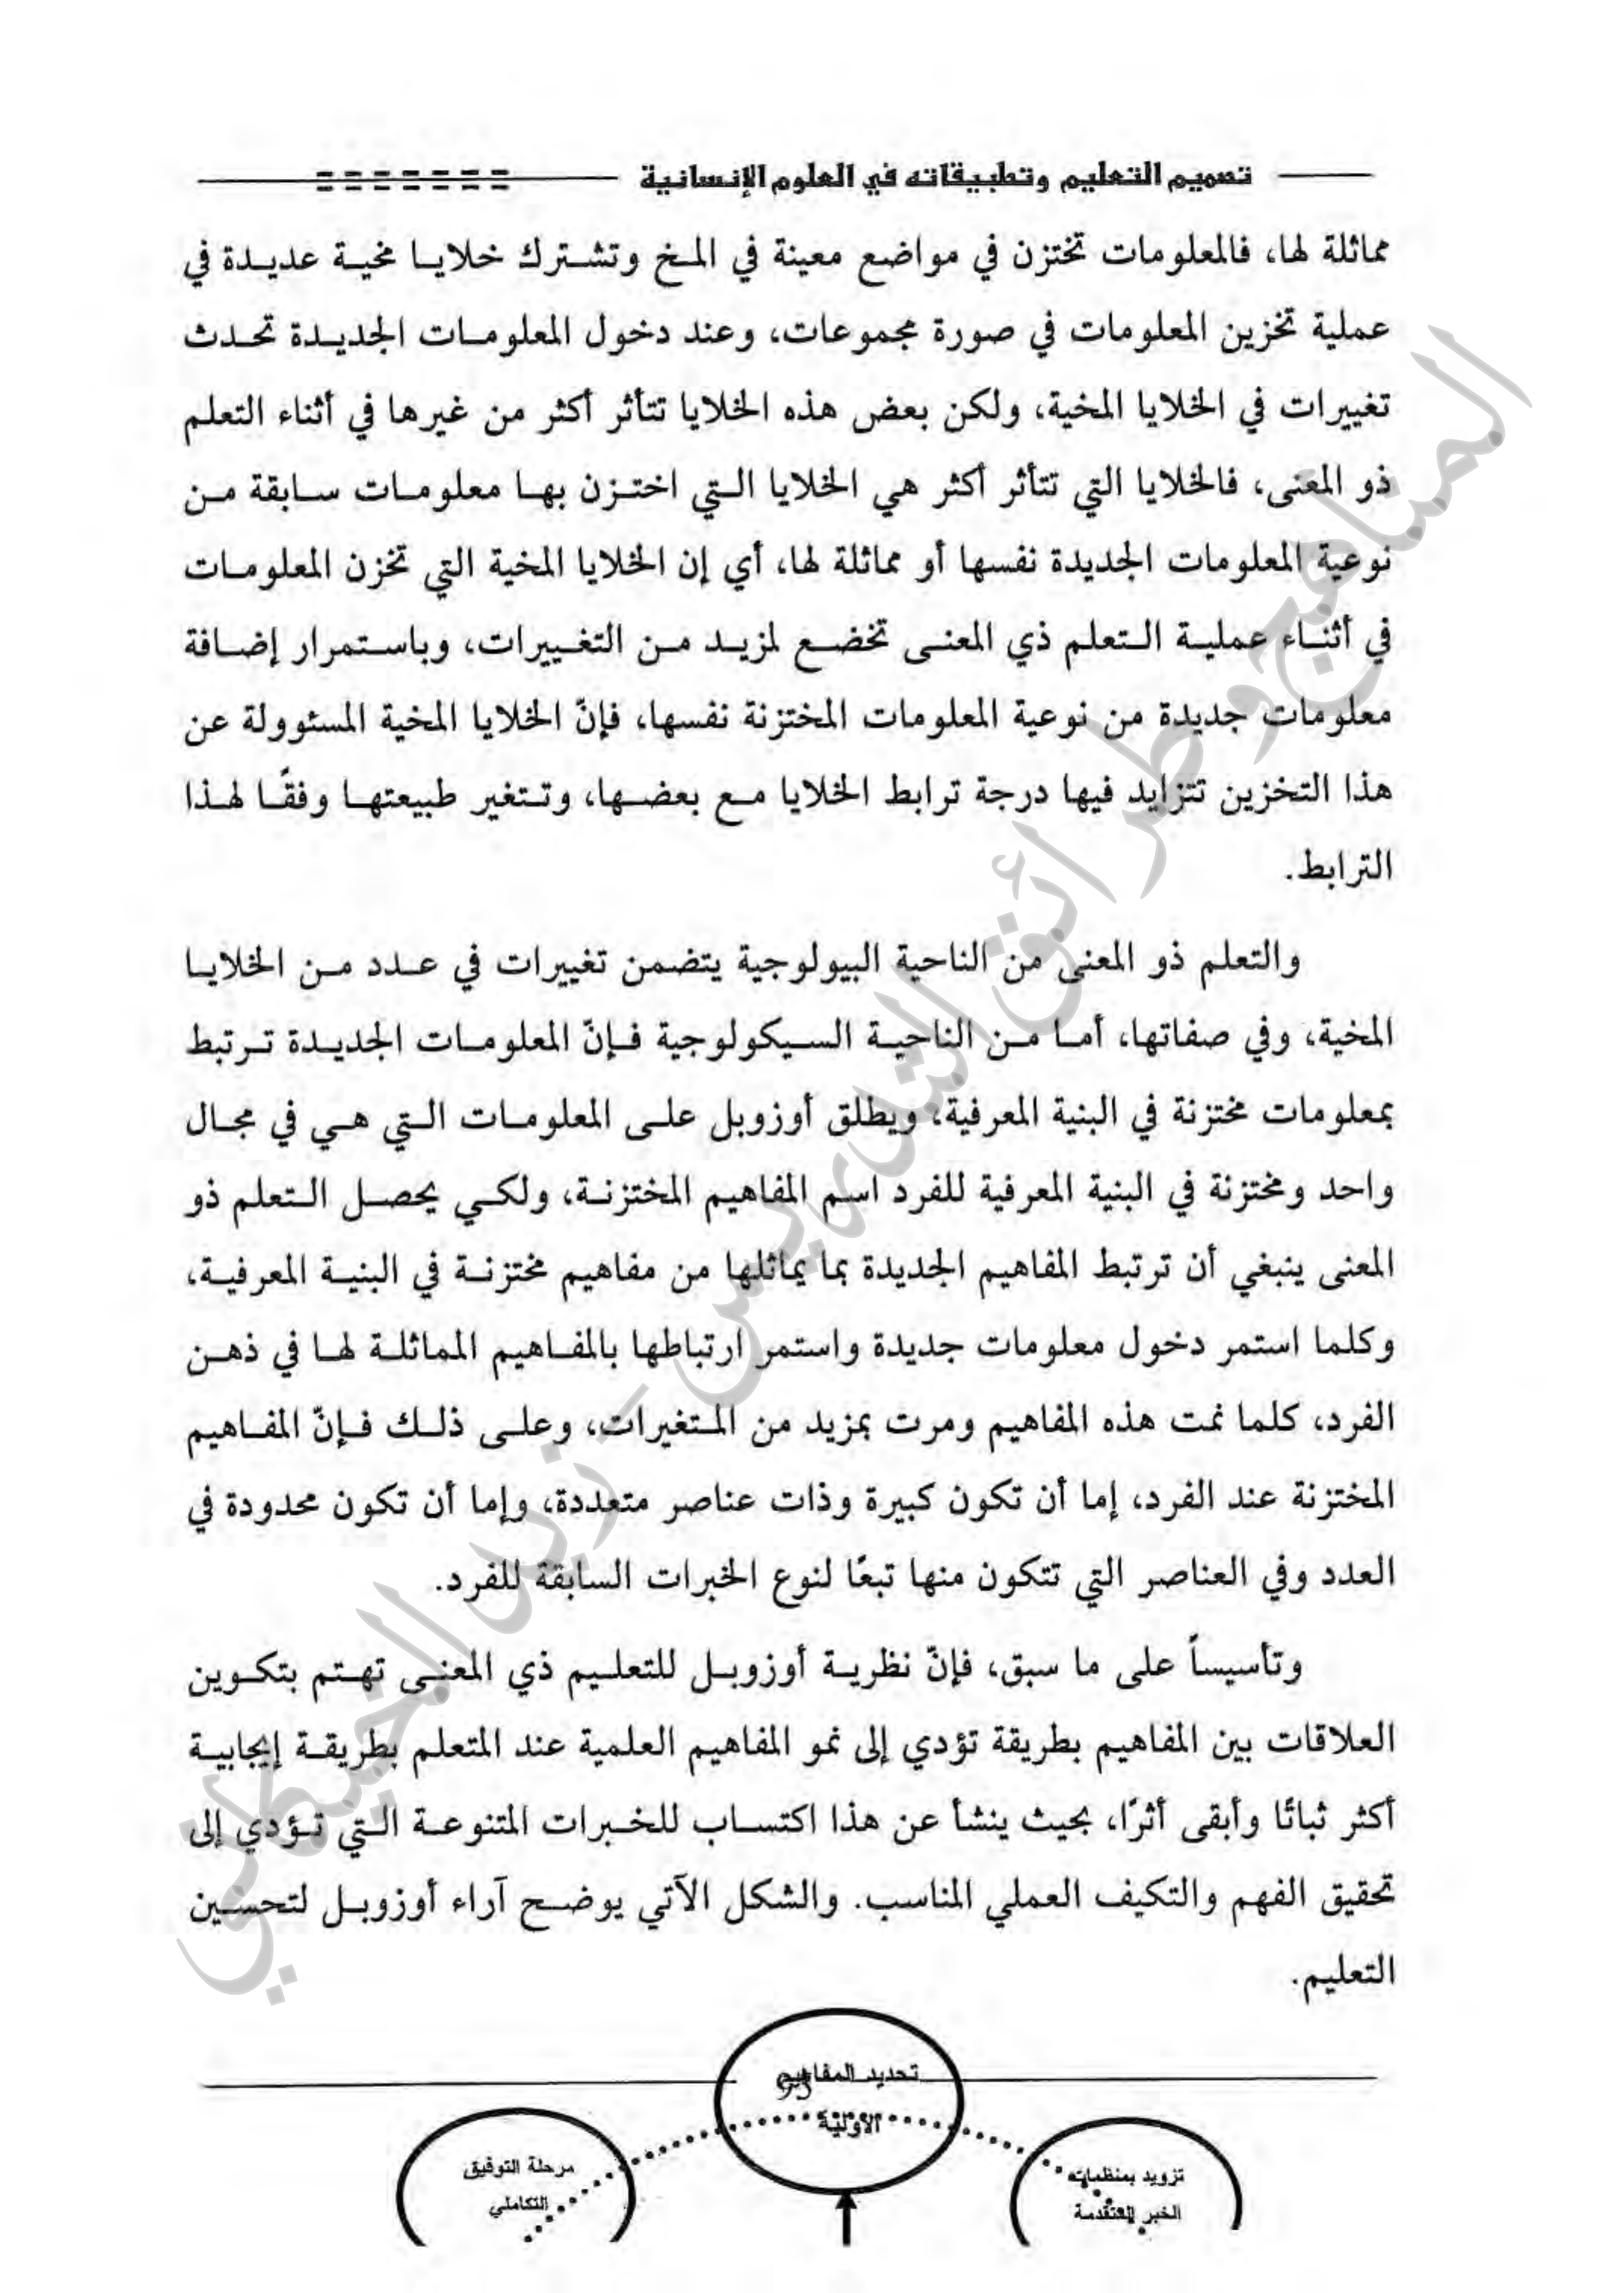 تصميم التعليم وتطبيقاته في العلوم الإنسانية
مماثلة لها، فالمعلومات تختزن في مواضع معينة في المخ وتشترك خلايا مخية عديدة في
عملية تخزين المعلومات في صورة مجموعات، وعند دخول المعلومات الجديدة تحدث
تغييرات في الخلايا المخية، ولكن بعض هذه الخلايا تتأثر أكثر من غيرها في أثناء التعلم
ذو المعنى، فالخلايا التي تتأثر أكثر هي الخلايا التي اختزن بها معلومات سابقة من
نوعية المعلومات الجديدة نفسها أو مماثلة لها، أي إن الخلايا المخية التي تخزن المعلومات
في أثناء عملية التعلم ذي المعنى تخضع لمزيد من التغييرات، وباستمرار إضافة
معلومات جديدة من نوعية المعلومات المختزنة نفسها، فإنّ الخلايا المخية المسئوولة عن
هذا التخزين تتزايد فيها درجة ترابط الخلايا مع بعضها، وتتغير طبيعتها وفقًا لهذا
الترابط.
والتعلم ذو المعنى من الناحية البيولوجية يتضمن تغييرات في عدد من الخلايا
المخية، وفي صفاتها، أما من الناحية السيكولوجية فإنّ المعلومات الجديدة ترتبط
بمعلومات مختزنة في البنية المعرفية، ويطلق أوزوبل على المعلومات التي هي في مجال
واحد ومختزنة في البنية المعرفية للفرد اسم المفاهيم المختزنة، ولكي يحصل التعلم ذو
المعنى ينبغي أن ترتبط المفاهيم الجديدة بما يماثلها من مفاهيم مختزنة في البنية المعرفية،
وكلما استمر دخول معلومات جديدة واستمر ارتباطها بالمفاهيم المماثلة لها في ذهن
الفرد، كلما نمت هذه المفاهيم ومرت بمزيد من المتغيرات، وعلى ذلك فإنّ المفاهيم
المختزنة عند الفرد، إما أن تكون كبيرة وذات عناصر متعددة، وإما أن تكون محدودة في
العدد وفي العناصر التي تتكون منها تبعًا لنوع الخبرات السابقة للفرد.
وتأسيساً على ما سبق، فإنّ نظرية أوزوبل للتعليم ذي المعنى تهتم بتكوين
العلاقات بين المفاهيم بطريقة تؤدي إلى نمو المفاهيم العلمية عند المتعلم بطريقة إيجابية
أكثر ثباتًا وأبقى أثرًا، بحيث ينشأ عن هذا اكتساب للخبرات المتنوعة التي تؤدي إلى
تحقيق الفهم والتكيف العملي المناسب. والشكل الآتي يوضح آراء أوزوبل لتحسين
التعليم.
تحديد المفاهيم
95
الأولية
تزويد بمنظمات
الخبر المتقدمة
مرحلة التوفيق
التكاملي
المناهج وطرائق التدريس - زيد الخيكاني